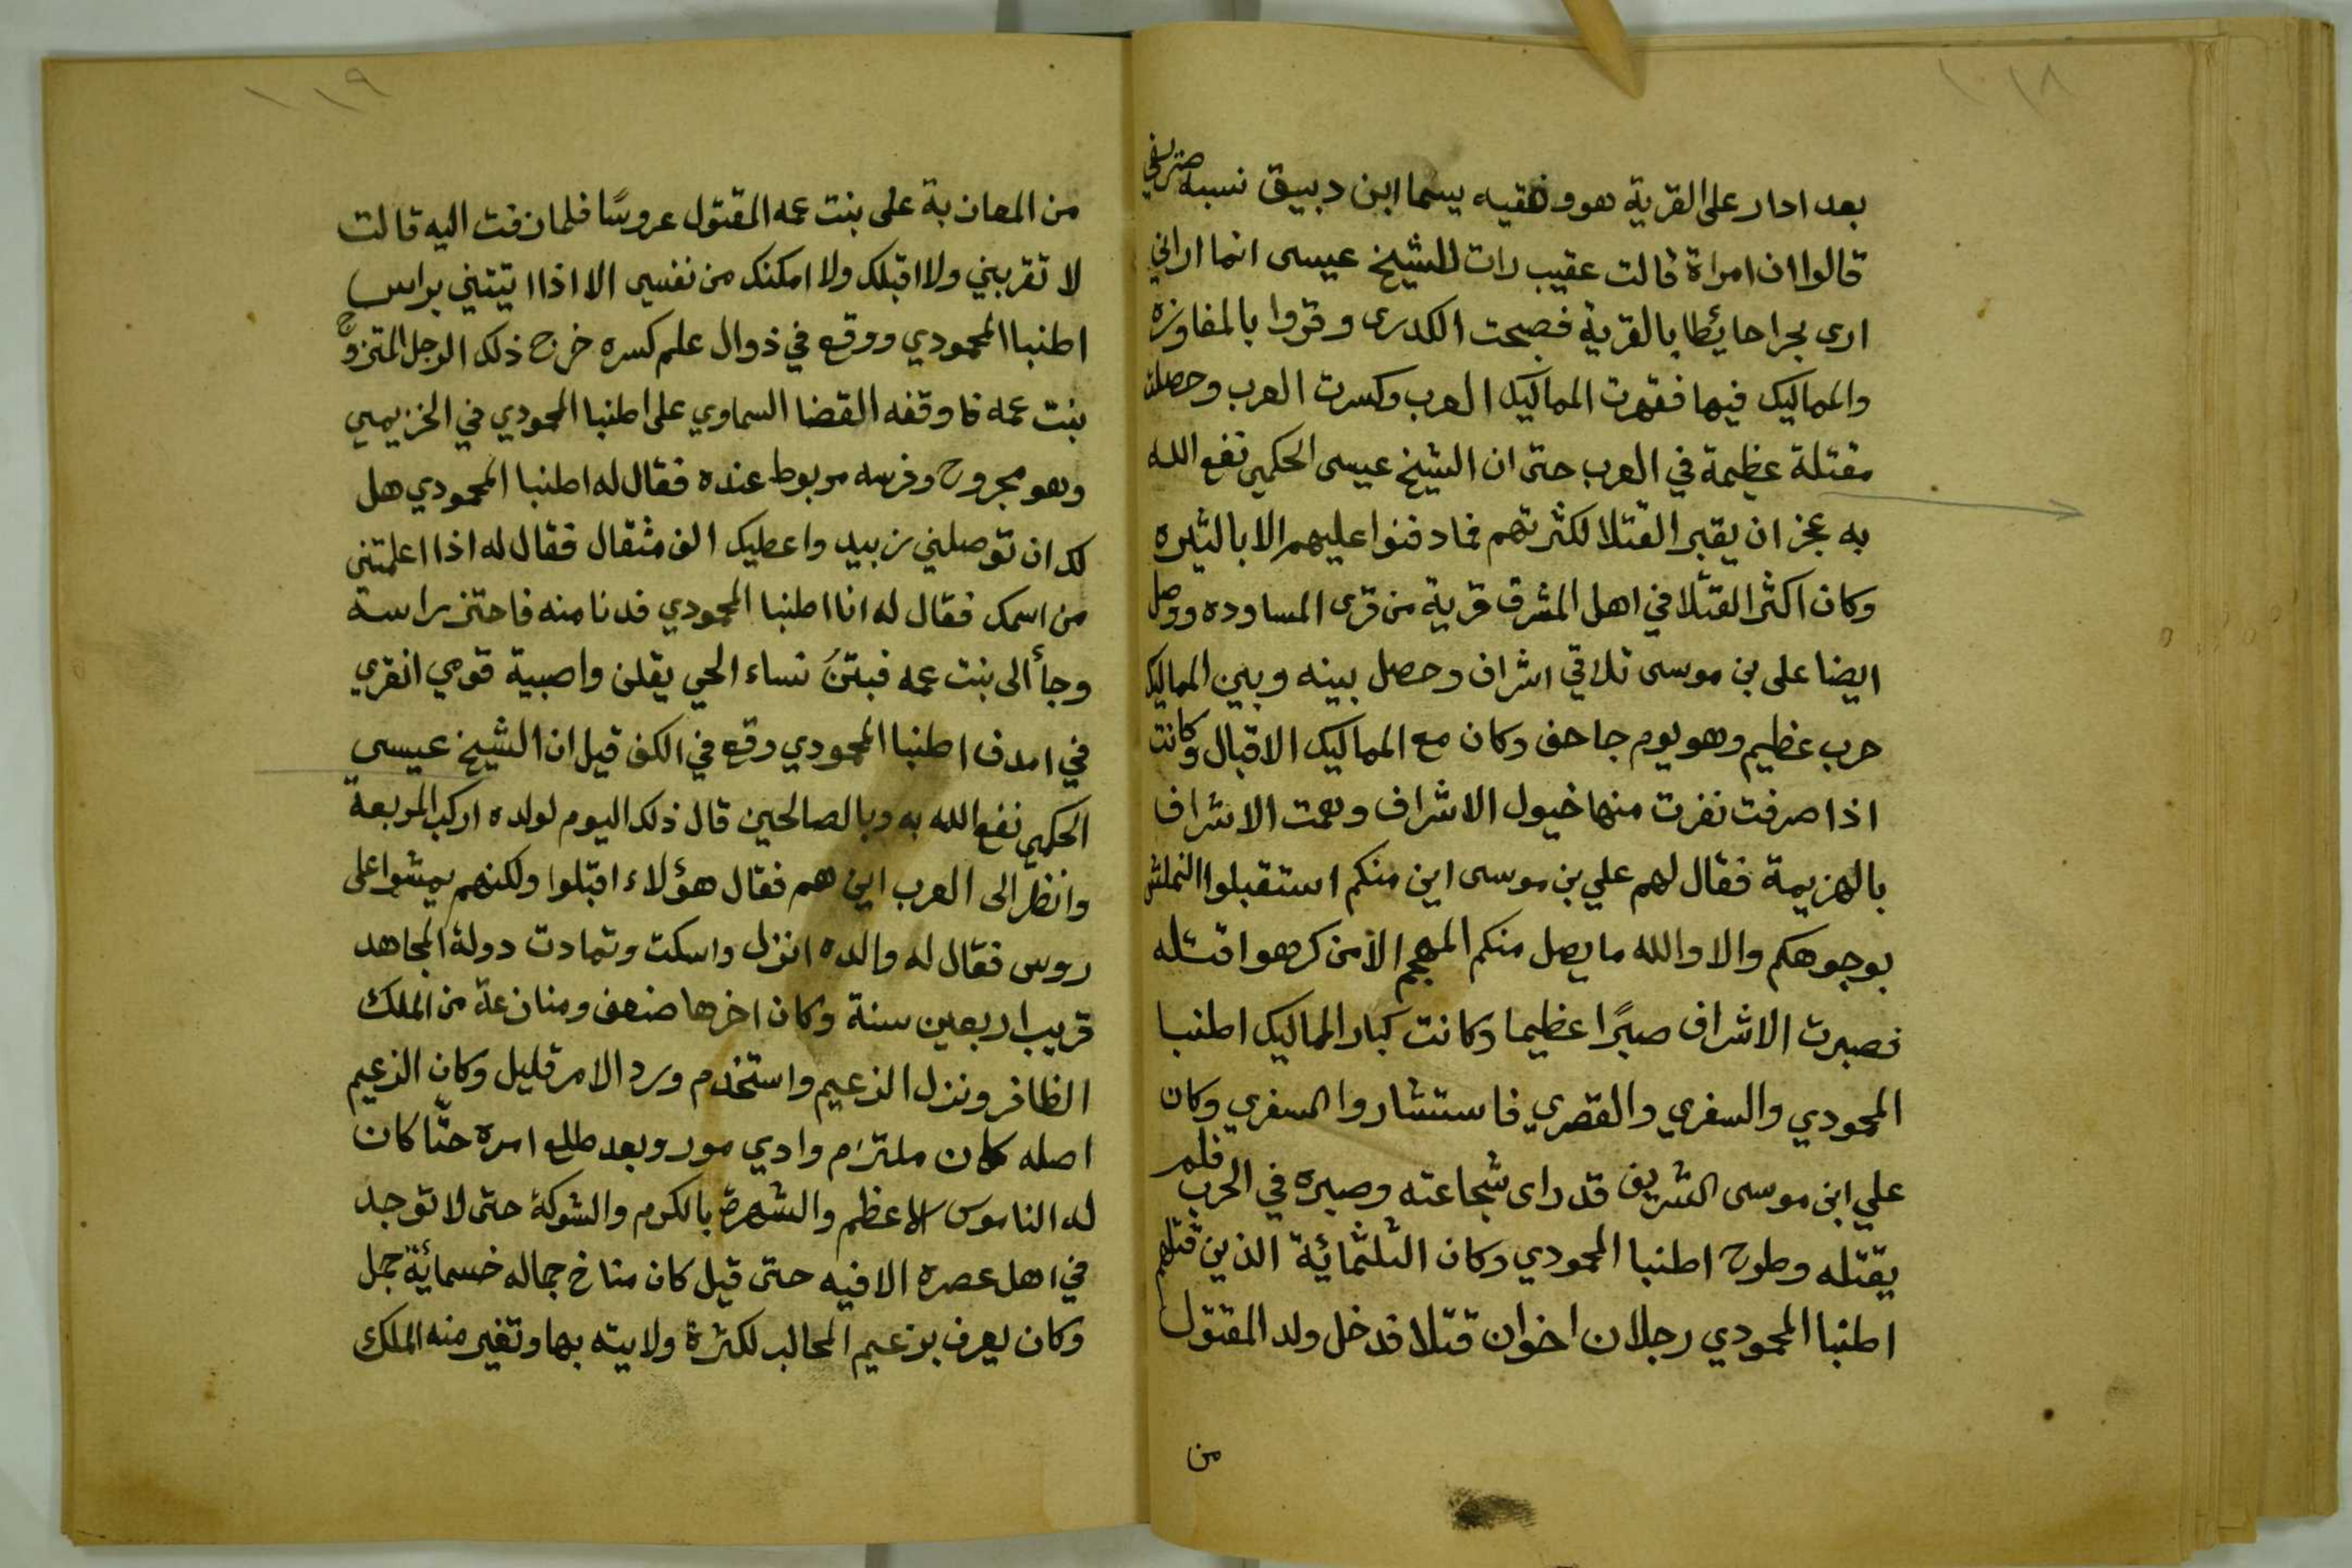 ١١٨
بعد ادار على القرية هو وفقيه يسما ابن دبيق نسبه صريفي
قالوا ان امراة قالت عقيب رات الشيخ عيسى انما اراني
ارى بحرا حائطا بالقرية فصبحت الكدرى وقروا بالمفاوزه
والمماليك فيها فقهرت المماليك العرب وكسرت العرب وحصلت
مقتلة عظيمة في العرب حتى ان الشيخ عيسى الحكمي نفع الله
به عجز ان يقبر القتلا لكثرتهم فما دفنوا عليهم الا بالثيره
وكان اكثر القتلا في اهل المشرق قرية من قرى المساوده ووصل
ايضا على بن موسى تلاقي اشراف وحصل بينه وبين المماليك
حرب عظيم وهو يوم جاحف وكان مع المماليك الاقبال وكانت
اذا صرفت نفرت منها خيول الاشراف وهمت الاشراف
بالهزيمة فقال لهم علي بن موسى اين منكم استقبلوا
بوجوهكم والا والله ما يصل منكم المهجم الا من كرهوا قتله
فصبرت الاشراف صبرًا عظيما وكانت كبار المماليك اطنبا
المحمودي والسفري والقصري فاستشاروا السفري وكان
علي ابن موسى الشريف قد راى شجاعته وصبره في الحرب فلم
يقتله وطرح اطنبا المحمودي وكان الثلثمائة الذين قتلهم
اطنبا المحمودي رجلان اخوان قتلا فدخل ولد المقتول
من
١١٩
من المعازبة على بنت عمه المقتول عروسًا فلما زفت اليه قالت
لا تقربيني ولا اقبلك ولا امكنك من نفسي الا اذا اتيتني براس
اطنبا المحمودي ووقع في ذوال علم كسره خرج ذلك الرجل المتزوج
بنت عمه فاوقفه القضا السماوي على اطنبا المحمودي في الخزيمي
وهو مجروح وفرسه مربوط عنده فقال له اطنبا المحمودي هل
لك ان توصلني زبيد واعطيك الف مثقال فقال له اذا اعلمتني
من اسمك فقال له انا اطنبا المحمودي فدنا منه فاحتز براسه
وجأ الى بنت عمه فبتن نساء الحي يقلن واصبية قومي انقري
في امدف اطنبا المحمودي وقع في الكف قيل ان الشيخ عيسى
الحكمي نفع الله به وبالصالحين قال ذلك اليوم لولده اركب المربعة
وانظر الى العرب اين هم فقال هؤلاء اقبلوا ولكنهم يمشوا على
روس فقال له والده انزل واسكت وتمادت دولة المجاهد
قريب اربعين سنة وكان اخرها ضعف ومنازعة من الملك
الظافر ونزل الزعيم واستخدم ورد الامر قليل وكان الزعيم
اصله كان ملتزام وادي مور وبعد طلع امره حتّا كان
له الناموس الاعظم والشهرة بالكرم والشوكة حتى لا توجد
في اهل عصره الا فيه حتى قيل كان مناخ جماله خسمائة جمل
وكان يعرف بزعيم المحالب لكثرة ولايته بها وتغير منه الملك